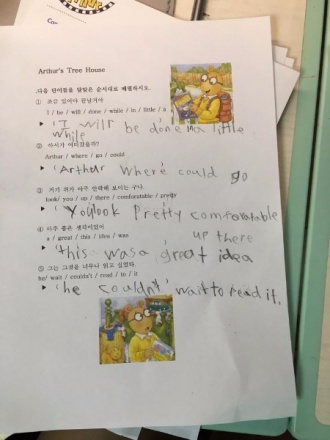 Arthur's Tree House
다음 단어들을 알맞은 순서대로 배열하시오.
① 조금 있어야 끝날거야
I / be / will / done / while / in / little / a
▶ 'I will be done in a little
while
② 아서가 어디갔을까?
Arthur / where / go / could
▶ 'Arthur where could go
③ 거기 위가 아주 편안해 보이는 구나.
look/ you / up / there / comfortable / pretty
▶ ' You look Pretty comfortable
up there
④ 아주 좋은 생각이었어
a / great / this / idea / was
▶ 'this was a great idea
⑤ 그는 그것을 너무나 읽고 싶었다.
he/ wait / couldn't / read / to / it
▶ 'he couldn't' wait to read it.